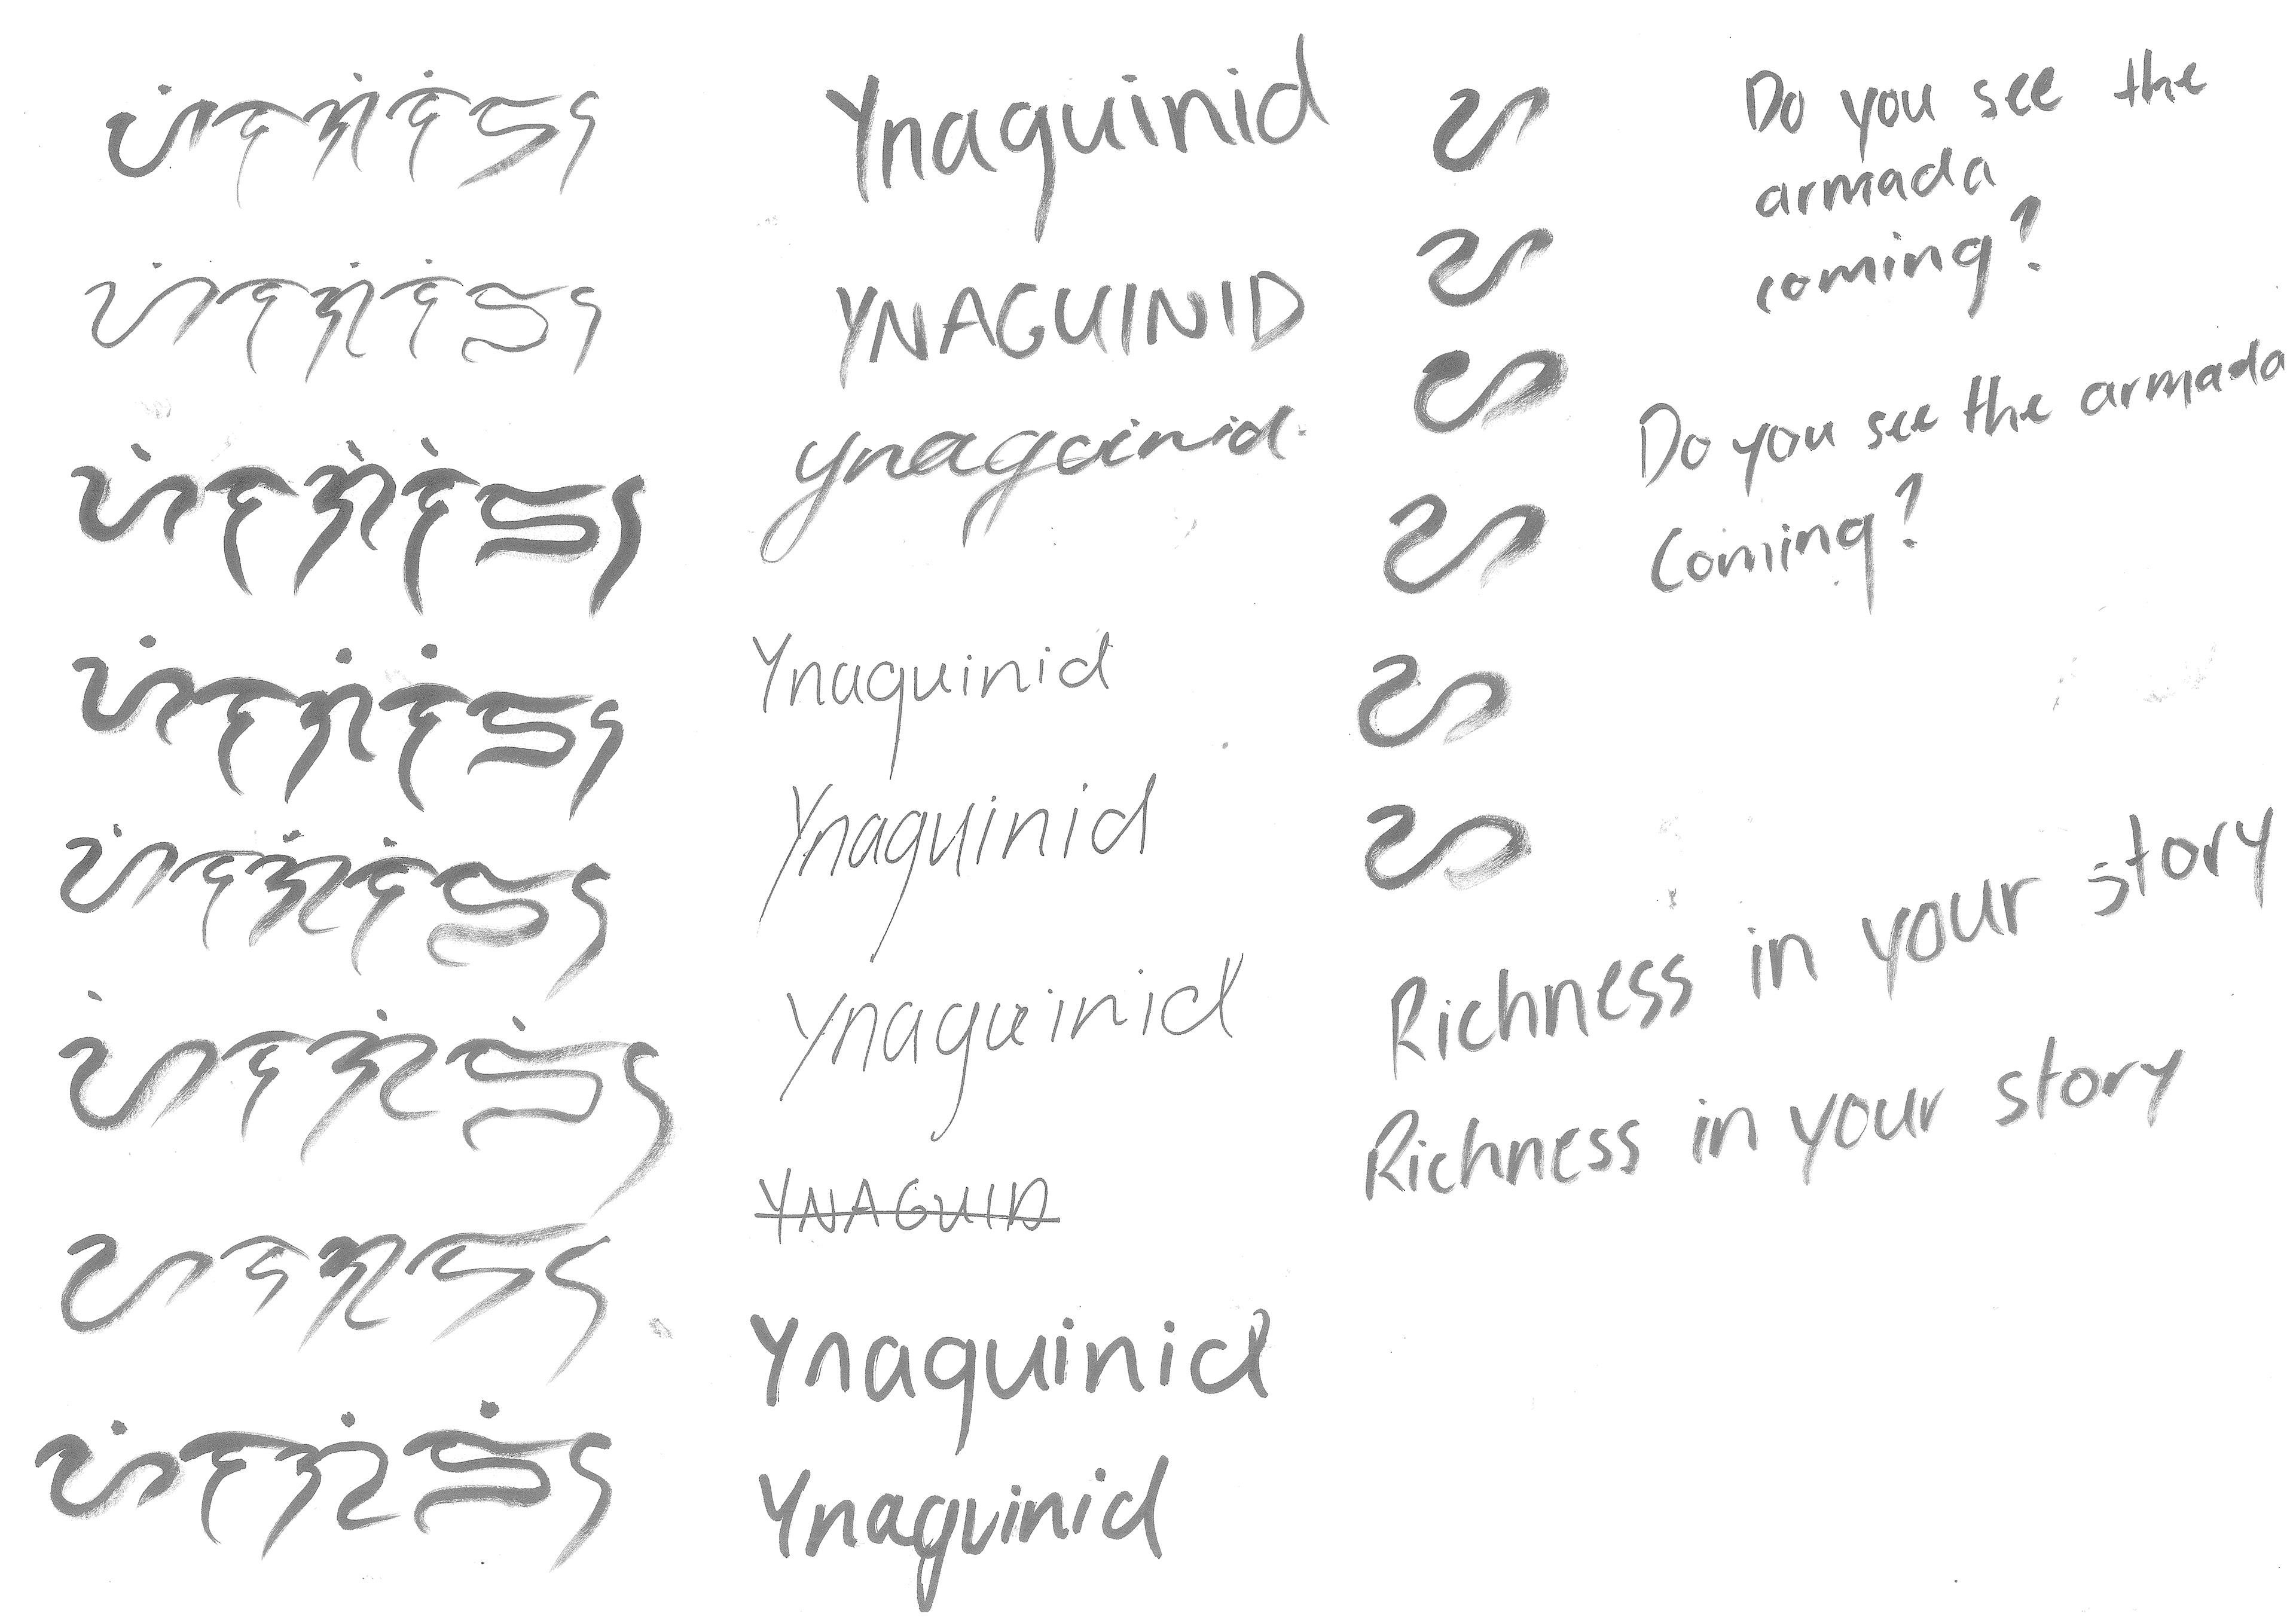 ᜌᜒᜈᜄᜒᜈᜒᜇ᜔
ᜌᜒᜈᜄᜒᜈᜒᜇ᜔
ᜌᜒᜈᜄᜒᜈᜒᜇ᜔
ᜌᜒᜈᜄᜒᜈᜒᜇ᜔
ᜌᜒᜈᜄᜒᜈᜒᜇ᜔
ᜌᜒᜈᜄᜒᜇᜒ᜔
ᜌᜈᜄᜇ᜔
ᜌᜒᜈᜄᜒᜇᜒ᜔
Ynaguinid
YNAGUINID
ynaguinid
Ynaguinid
Ynaguinid
Ynaguinid
YNAGUID
Ynaguinid
Ynaguinid
ᜌ
ᜌ
ᜌ
ᜌ
ᜌ
ᜌ
Do you see the
armada
coming?
Do you see the armada
Coming?
Richness in your story
Richness in your story